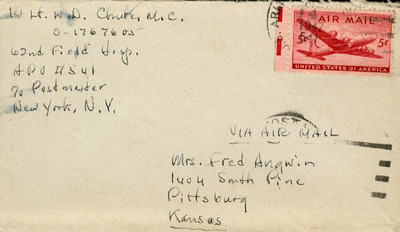 1st Lt. W. D. M.C.
O-1767605
62nd Field Hosp.
APO #541
c/o Postmaster
New York, N.Y.
AIR MAIL
5¢ 5¢
UNITED STATES OF AMERICA
VIA AIR MAIL
Mrs. Fred Angwin
1404 South Pine
Pittsburg
Kansas